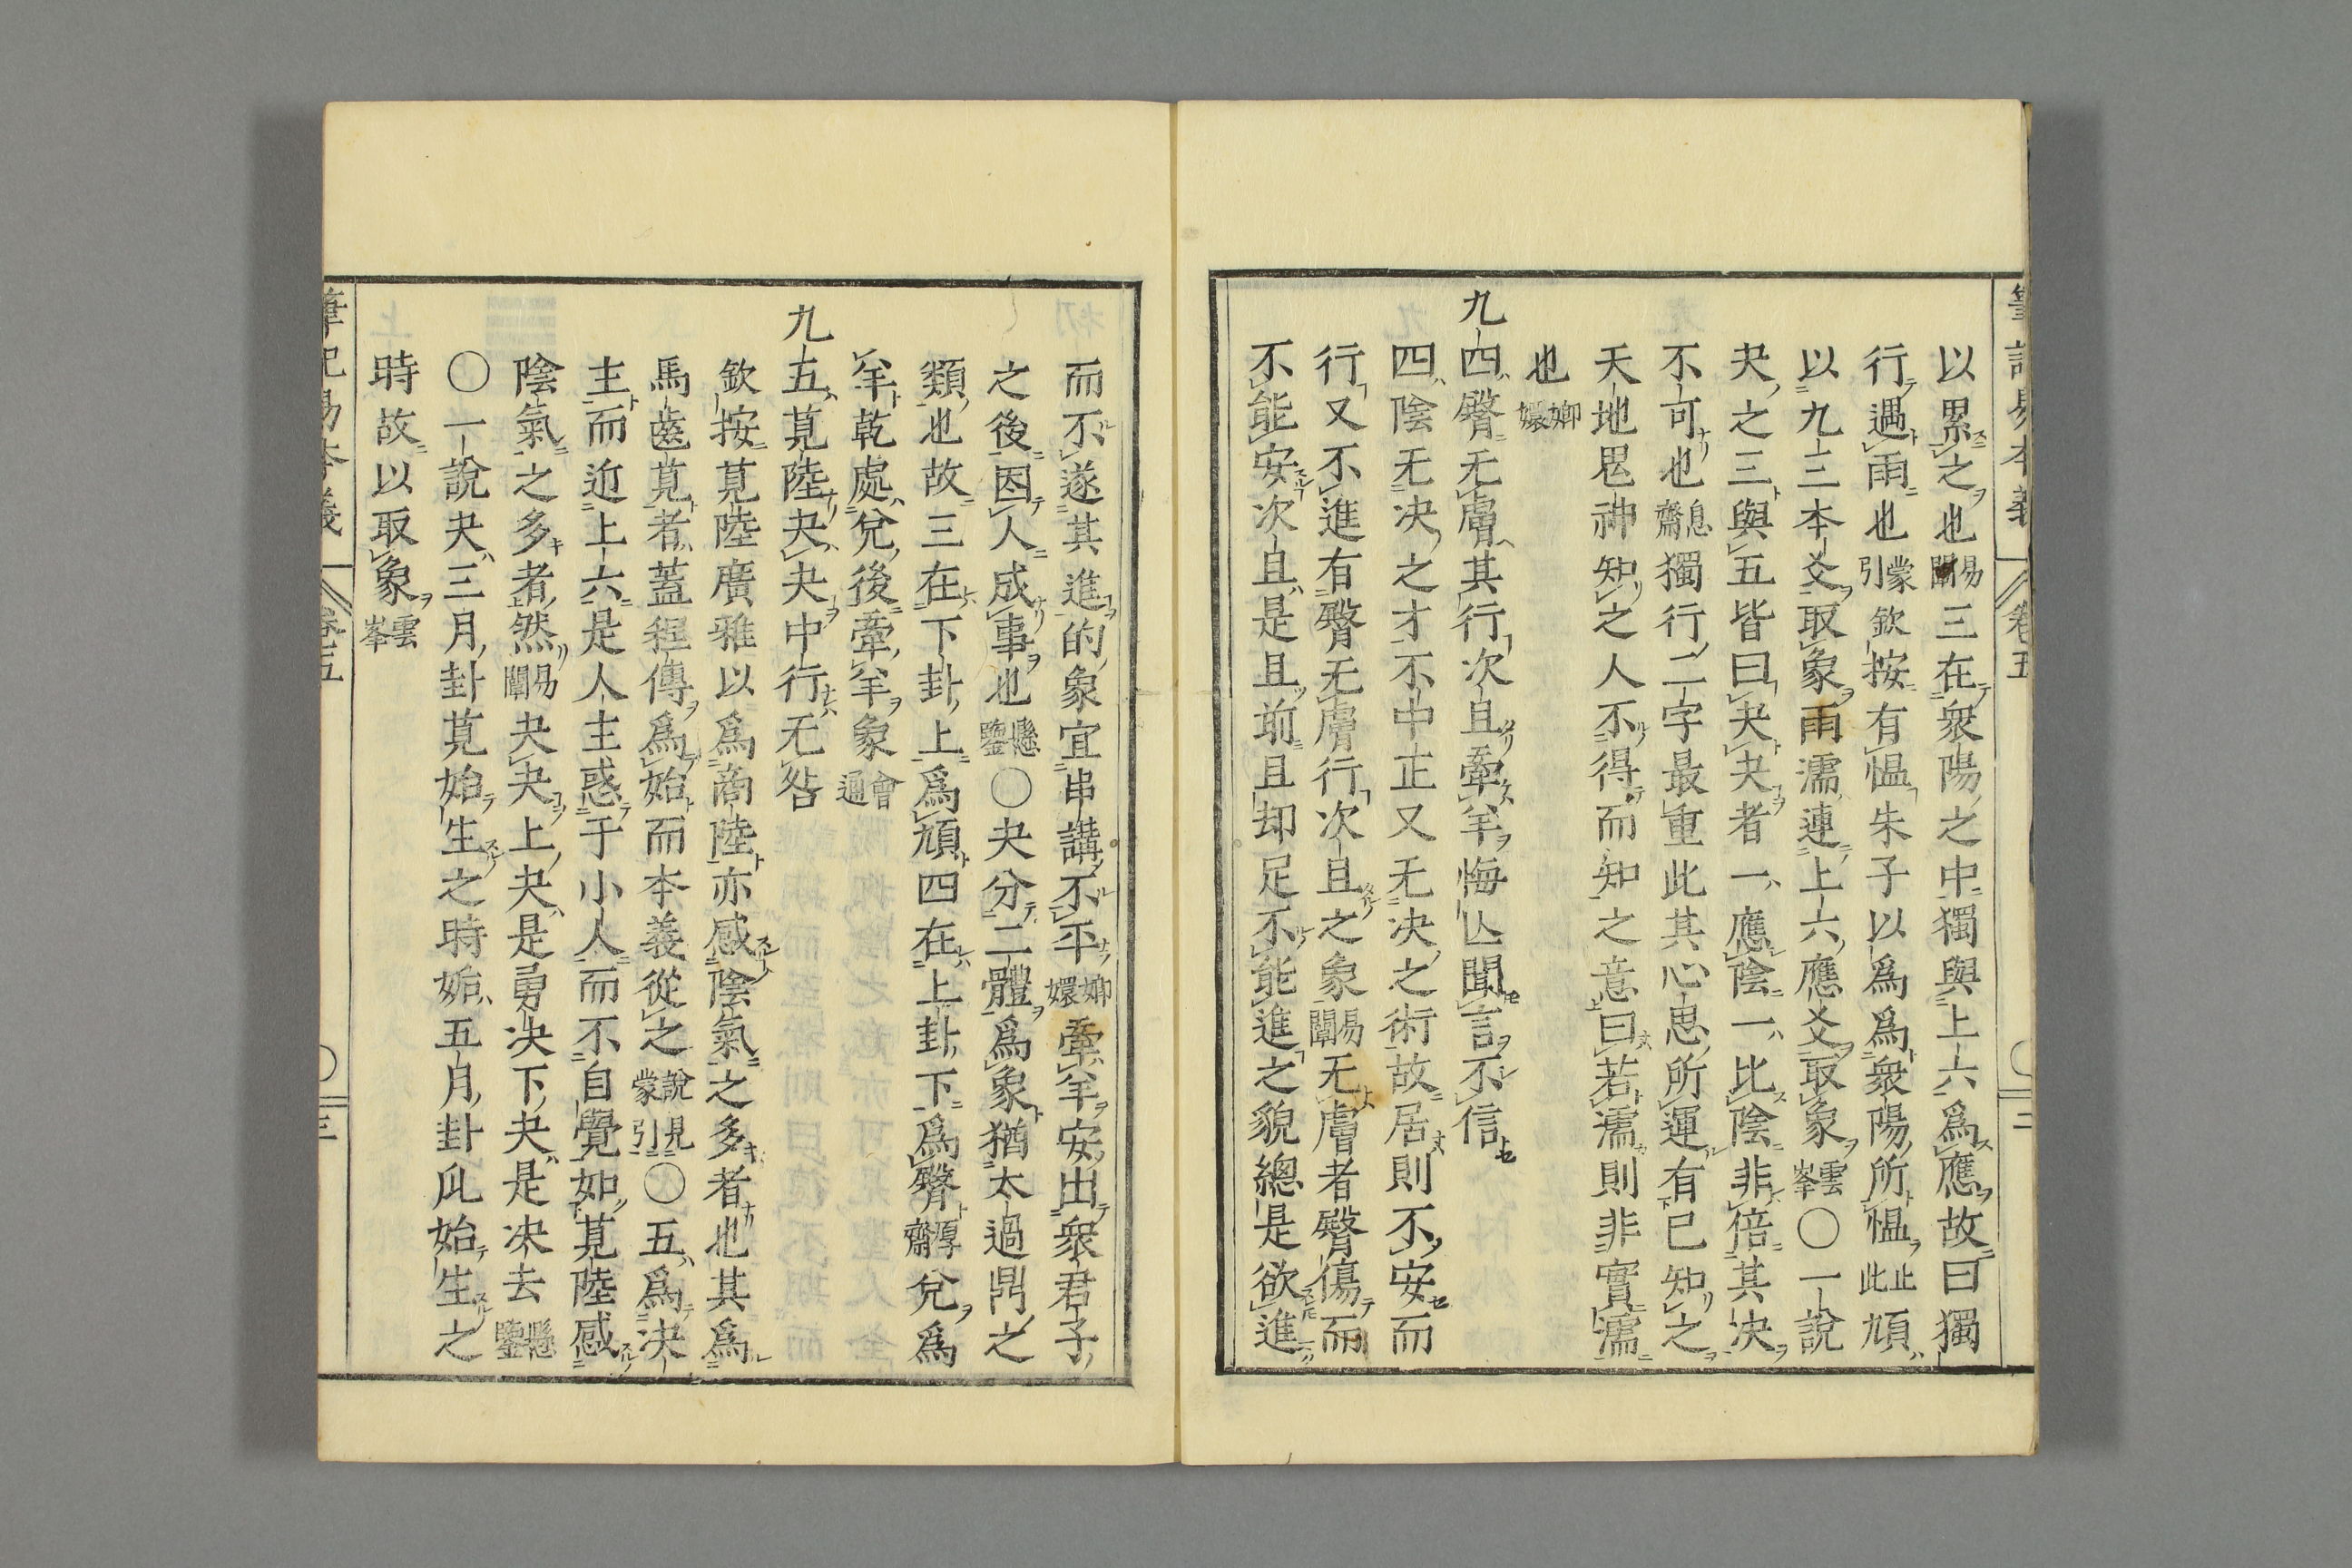 以累之也易闡三在衆陽之中獨與上六爲應故曰獨
行遇雨也蒙引欽按有慍朱子以爲爲衆陽所慍止此頄
以九三本爻取象雨濡連上六應爻取象雲峯〇一說
夬之三與五皆曰夬夬者一應陰一比陰非倍其决
不可也息齋獨行二字最重此其心思所運有已知之
天地鬼神知之人不得而知之意曰若濡則非實濡
也嫏嬛
九四臀无膚其行次且牽羊悔亾聞言不信
四陰无决之才不中正又无决之術故居則不安而
行又不進有臀无膚行次且之象易闡无膚者臀傷而
不能安次且是且前且却足不能進之貌總是欲進
而不遂其進的象宜串講不平嫏嬛牽羊安出衆君子
之後因人成事也懸鑒〇夬分二體爲象猶太過鼎之
類也故三在下卦上爲頄四在上卦下爲臀厚齋兌爲
羊乾處兌後牽羊象會通
九五莧陸夬夬中行无咎
欽按莧陸廣雅以爲商陸亦感陰氣之多者也其爲
馬齒莧者蓋程傳爲始而本義從之說見蒙引〇五爲决
主而近上六是人主惑于小人而不自覺如莧陸感
陰氣之多者然易闡夬夬上夬是勇决下夬是决去懸鑒
〇一說夬三月卦莧始生之時姤五月卦瓜始生之
時故以取象雲峯
筆記易本義 卷五 三